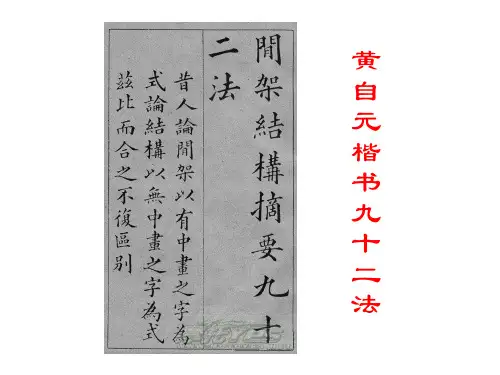 黄自元楷书九十二法
間架結構摘要九十
二法
昔人論間架以有中畫之字為
式論結構以無中畫之字為式
茲比而合之不復區別